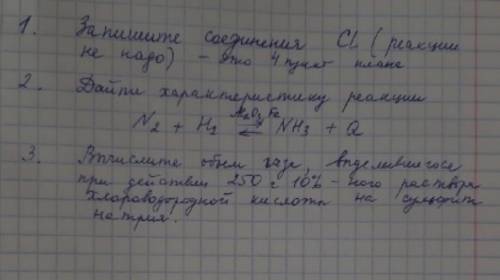 1. Запишите соединения Cl (реакции
не надо) - это 4 пункт плана
2. Дайте характеристику реакции
Al₂O₃, Fe
N₂ + H₂ ⇄ NH₃ + Q
3. Вычислите объем газа, выделившегося
при действии 250 г 10% - ного раствора
хлороводородной кислоты на сульфит
натрия.